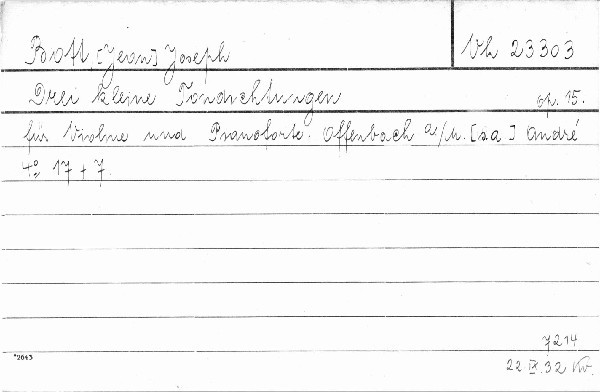 Bott, [Jean] Joseph Vh 23303
Drei kleine Tondichtungen op. 15.
für Violine und Pianoforte. Offenbach a/M. [s a] André
4° 17 + 7.
7214
22 IX. 32 Kv.
*2043